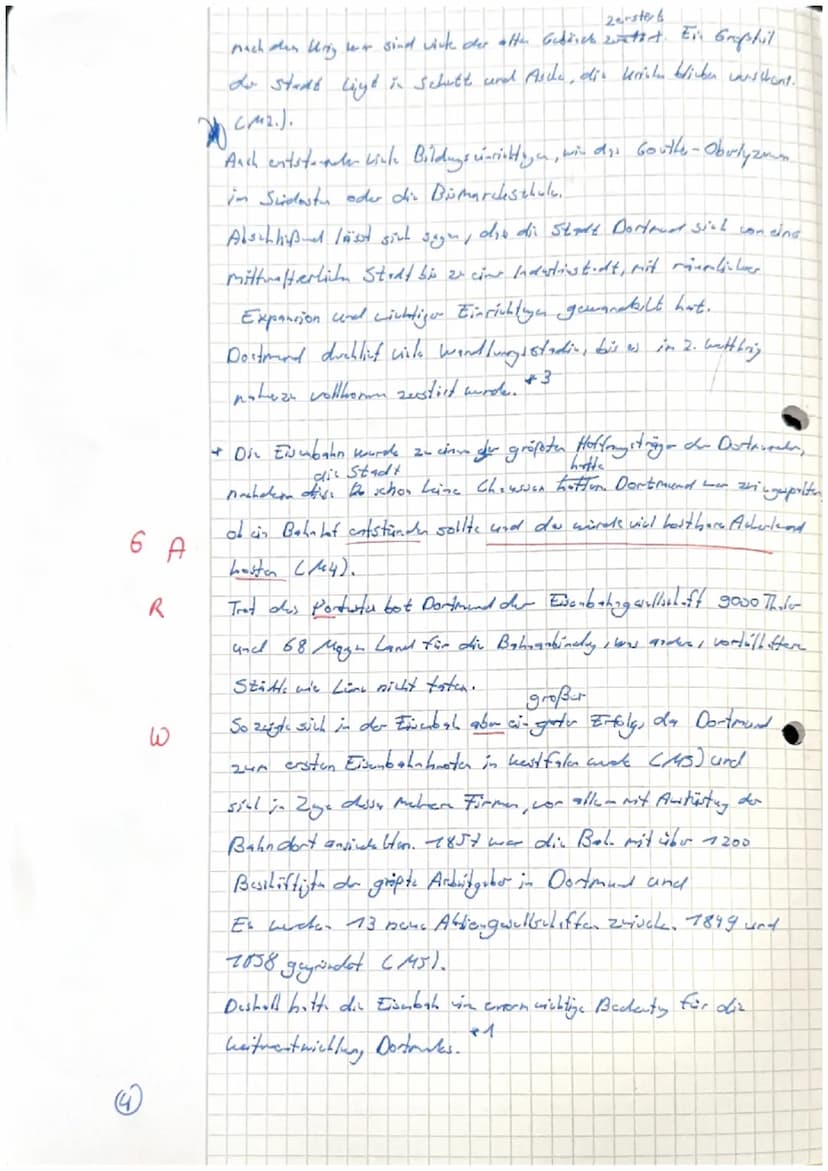 zerstört
nach dem Krieg war sind viele der alten Gebäude zerstört. Ein Großteil
der Stadt liegt in Schutt und Asche, die Kirchen blieben verschont.
(M2.).
Auch entstanden viele Bildungseinrichtungen, wie das Goethe-Oberlyzeum
im Südosten oder die Bismarckschule.
Abschließend lässt sich sagen, das die Stadt Dortmund sich von eine
mittelalterlichen Stadt bis zu einer Industriestadt, mit räumlicher
Expansion und wichtigen Einrichtungen gewandelt hat.
Dortmund durchlief viele Wandlungsstadien, bis es im 2. Weltkrieg
nahezu vollkommen zerstört wurde. *3
* Die Eisenbahn wurde zu einem der größten Hoffnungsträger der Dortmunder,
die Stadt hatte
nachdem schon keine Chausseen hatten. Dortmund war zwiegespalten
ob ein Bahnhof entstünden sollte und der würde viel kostbares Ackerland
6 A
kosten (M4).
R
Trotz des bot Dortmund der Eisenbahngesellschaft 9000 Thaler
und 68 Land für die Bahnanbindung, was andere, vorteilhaftere
Städte wie Lünen nicht taten.
großer
W
So zeigte sich in der Eisenbahn aber ein guter Erfolg, da Dortmund
zum ersten Eisenbahnknoten in Westfalen wurde (M5) und
sich im Zuge dessen mehrere Firmen, vor allem mit Ausrüstung der
Bahn dort ansiedelten. 1857 war die Bahn mit über 1200
Beschäftigten der größte Arbeitgeber in Dortmund und
Es wurden 13 neue Aktiengesellschaften zwischen 1849 und
1858 gegründet (M5).
Deshalb hatte die Eisenbahn eine enorm wichtige Bedeutung für die
Weiterentwicklung Dortmunds. *1
(4)